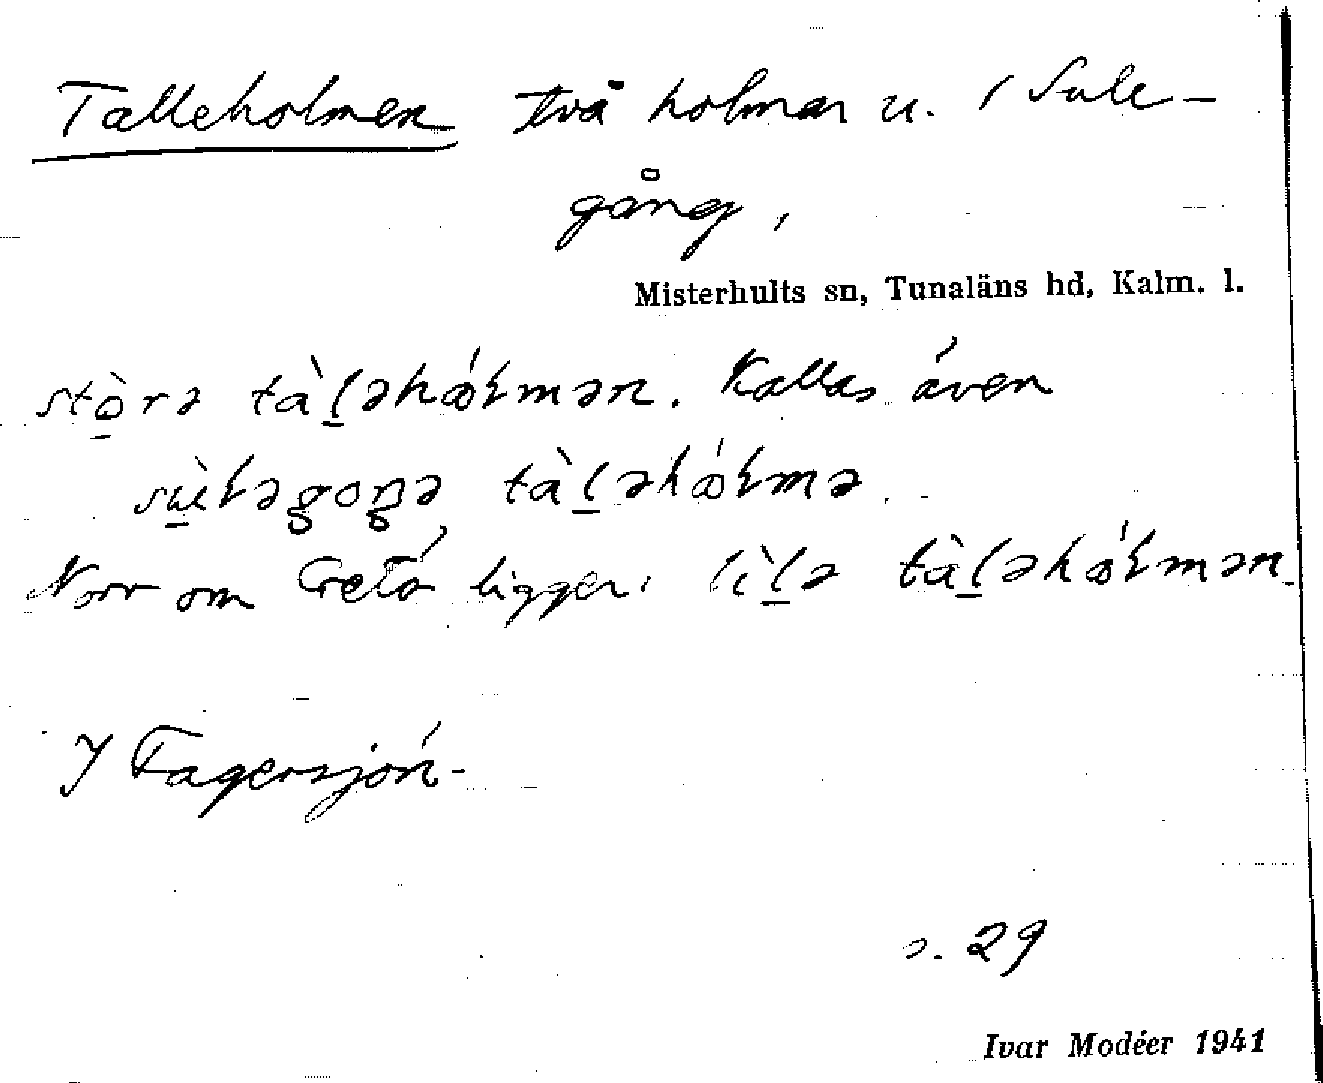 Talleholmen Två holmar u. / Sule-
gång,
Misterhults sn, Tunaläns hd, Kalm. l.
stòrə tàləhóɫmən. Kallas även
sùɫəgoŋə tàləhóɫmə.
Norr om Getö ligger: lìlə tàləhóɫmən
I Fagersjön-
s. 29
Ivar Modéer 1941